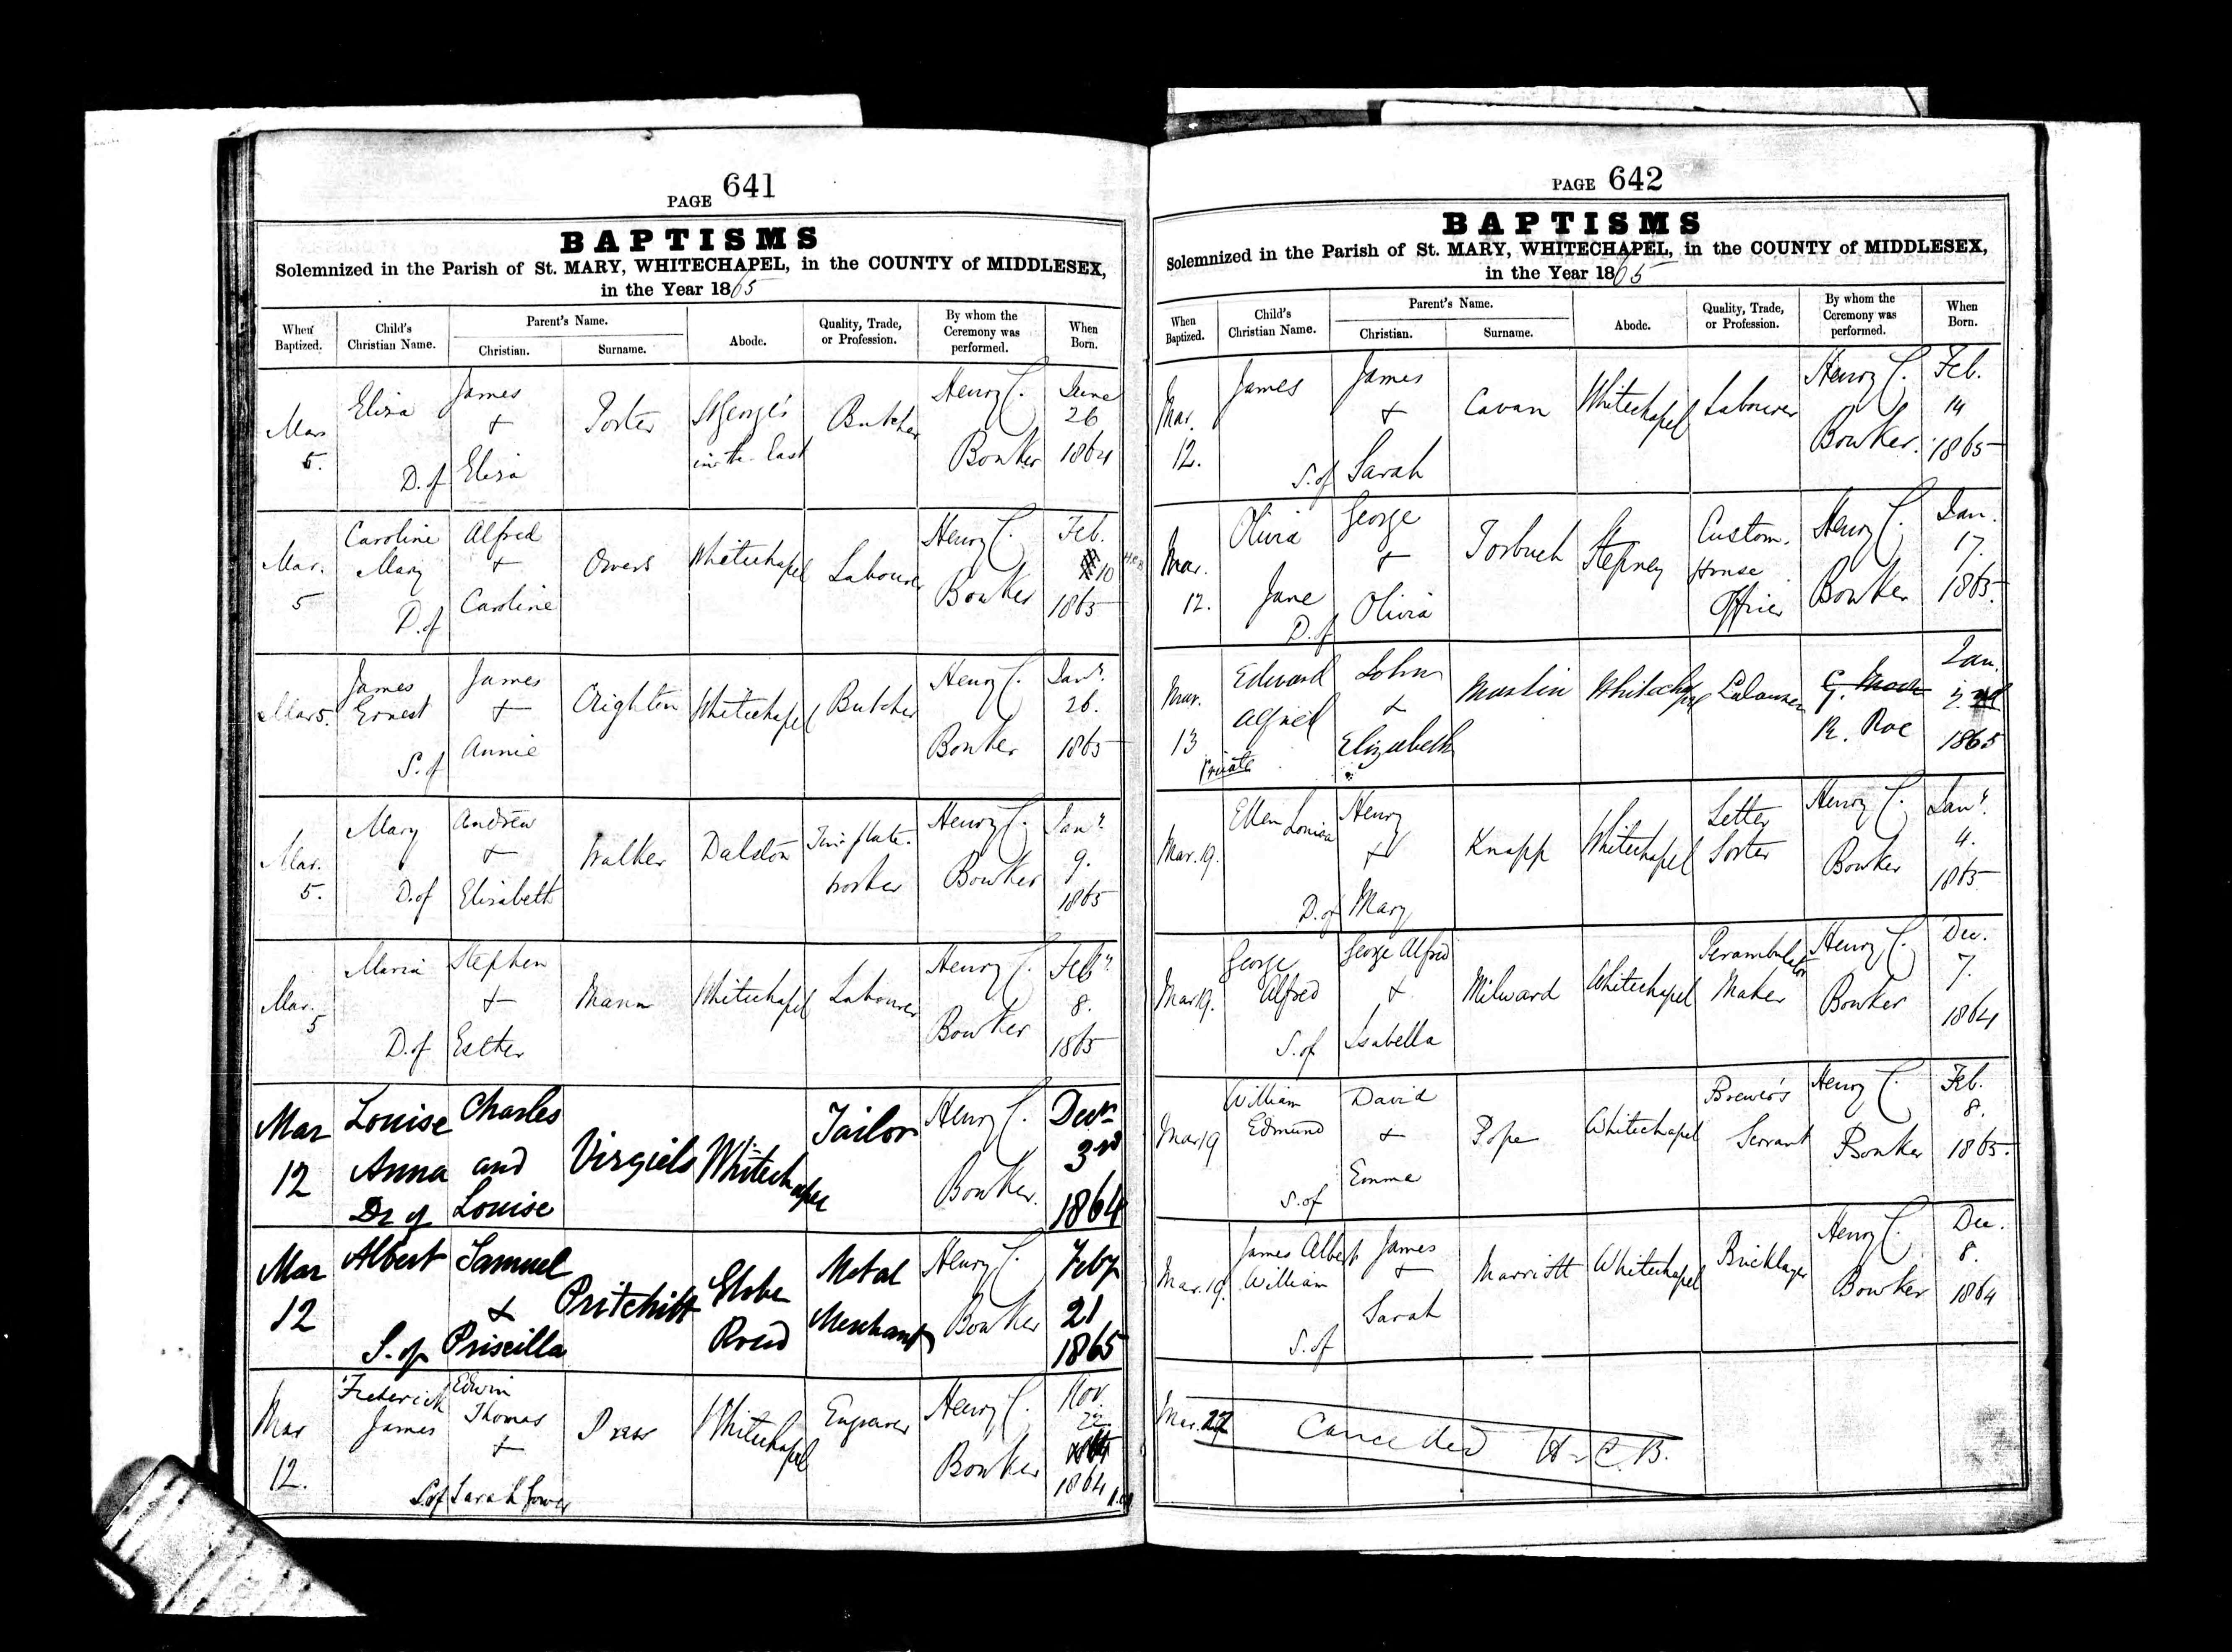 PAGE 641
BAPTISMS
Solemnized in the Parish of St. MARY, WHITECHAPEL, in the COUNTY of MIDDLESEX,
in the Year 1865
When Baptized. Child's Christian Name. Parent's Name. Christian. Surname. Abode. Quality, Trade, or Profession. By whom the Ceremony was performed. When Born.
Mar 5. Eliza D. of James & Eliza Porter St George's in the East Butcher Henry C. Bowker June 26 1864
Mar. 5 Caroline Mary D. of Alfred & Caroline Owers Whitechapel Labourer Henry C. Bowker Feb. 10 1865 H.C.B
Mar 5. James Ernest S. of James & Annie Crighton Whitechapel Butcher Henry C. Bowker Jany. 26. 1865
Mar. 5. Mary D. of Andrew & Elizabeth Walker Dalston Tin plate worker Henry C. Bowker Jany. 9. 1865
Mar. 5 Maria D. of Stephen & Esther Mann Whitechapel Labourer Henry C. Bowker Feby. 8. 1865
Mar 12 Louise Anna Dr of Charles and Louise Virgiels Whitechapel Tailor Henry C. Bowker. Decr 3rd 1864
Mar 12 Albert S. of Samuel & Priscilla Pritchitt Globe Road Metal Merchant Henry C. Bowker Feby 21 1865
Mar 12. Frederick James S. of Edwin Thomas & Sarah Drew Whitechapel Engraver Henry C. Bowker Nov. 22 1864
PAGE 642
BAPTISMS
Solemnized in the Parish of St. MARY, WHITECHAPEL, in the COUNTY of MIDDLESEX,
in the Year 1865
When Baptized. Child's Christian Name. Parent's Name. Christian. Surname. Abode. Quality, Trade, or Profession. By whom the Ceremony was performed. When Born.
Mar. 12. James S. of James & Sarah Cavan Whitechapel Labourer Henry C. Bowker. Feb. 14 1865
Mar. 12. Olivia Jane D. of George & Olivia Stepney Custom House Officer Henry C. Bowker Jan. 17. 1865.
Mar. 13 Private Edward Alfred John & Elizabeth Maslin Whitechapel Labourer R. Roe Jan. 1865
Mar. 19. Ellen Louisa D. of Henry & Mary Knapp Whitechapel Letter Sorter Henry C. Bowker Jany. 4. 1865
Mar 19. George Alfred S. of George Alfred & Isabella Milward Whitechapel Perambulator Maker Henry C. Bowker Dec. 7. 1864
Mar 19 William Edmund S. of David & Emma Pope Whitechapel Brewer's Servant Henry C. Bowker Feb. 8. 1865.
Mar. 19. James Albert William S. of James & Sarah Marriott Whitechapel Bricklayer Henry C. Bowker Dec. 8. 1864
Mar. 22 Cancelled H. C. B.